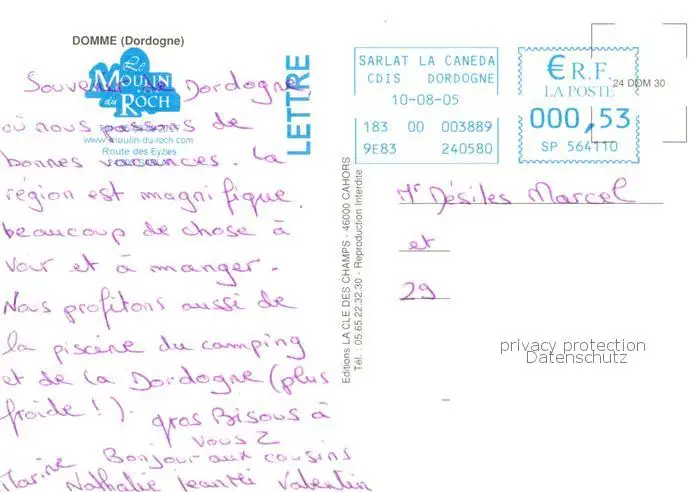 DOMME (Dordogne)
Le
MOULIN
du
ROCH
www.moulin-du-roch.com
Route des Eyzies
Souvenir de Dordogne,
où nous passons de
bonnes vacances. La
région est magnifique,
beaucoup de chose à
voir et à manger.
Nous profitons aussi de
la piscine du camping
et de la Dordogne (plus
froide !). gros Bisous à
vous 2
Bonjour aux cousins
Marine Nathalie Valentin
LETTRE
Editions LA CLE DES CHAMPS - 46000 CAHORS
Tél. : 05.65.22.32.30 - Reproduction Interdite
SARLAT LA CANEDA
CDIS DORDOGNE
10-08-05
183 00 003889
9E83 240580
€ R.F.
LA POSTE
000,53
SP 564110
24 DOM 30
Mr Désiles Marcel
et
29
privacy protection
Datenschutz